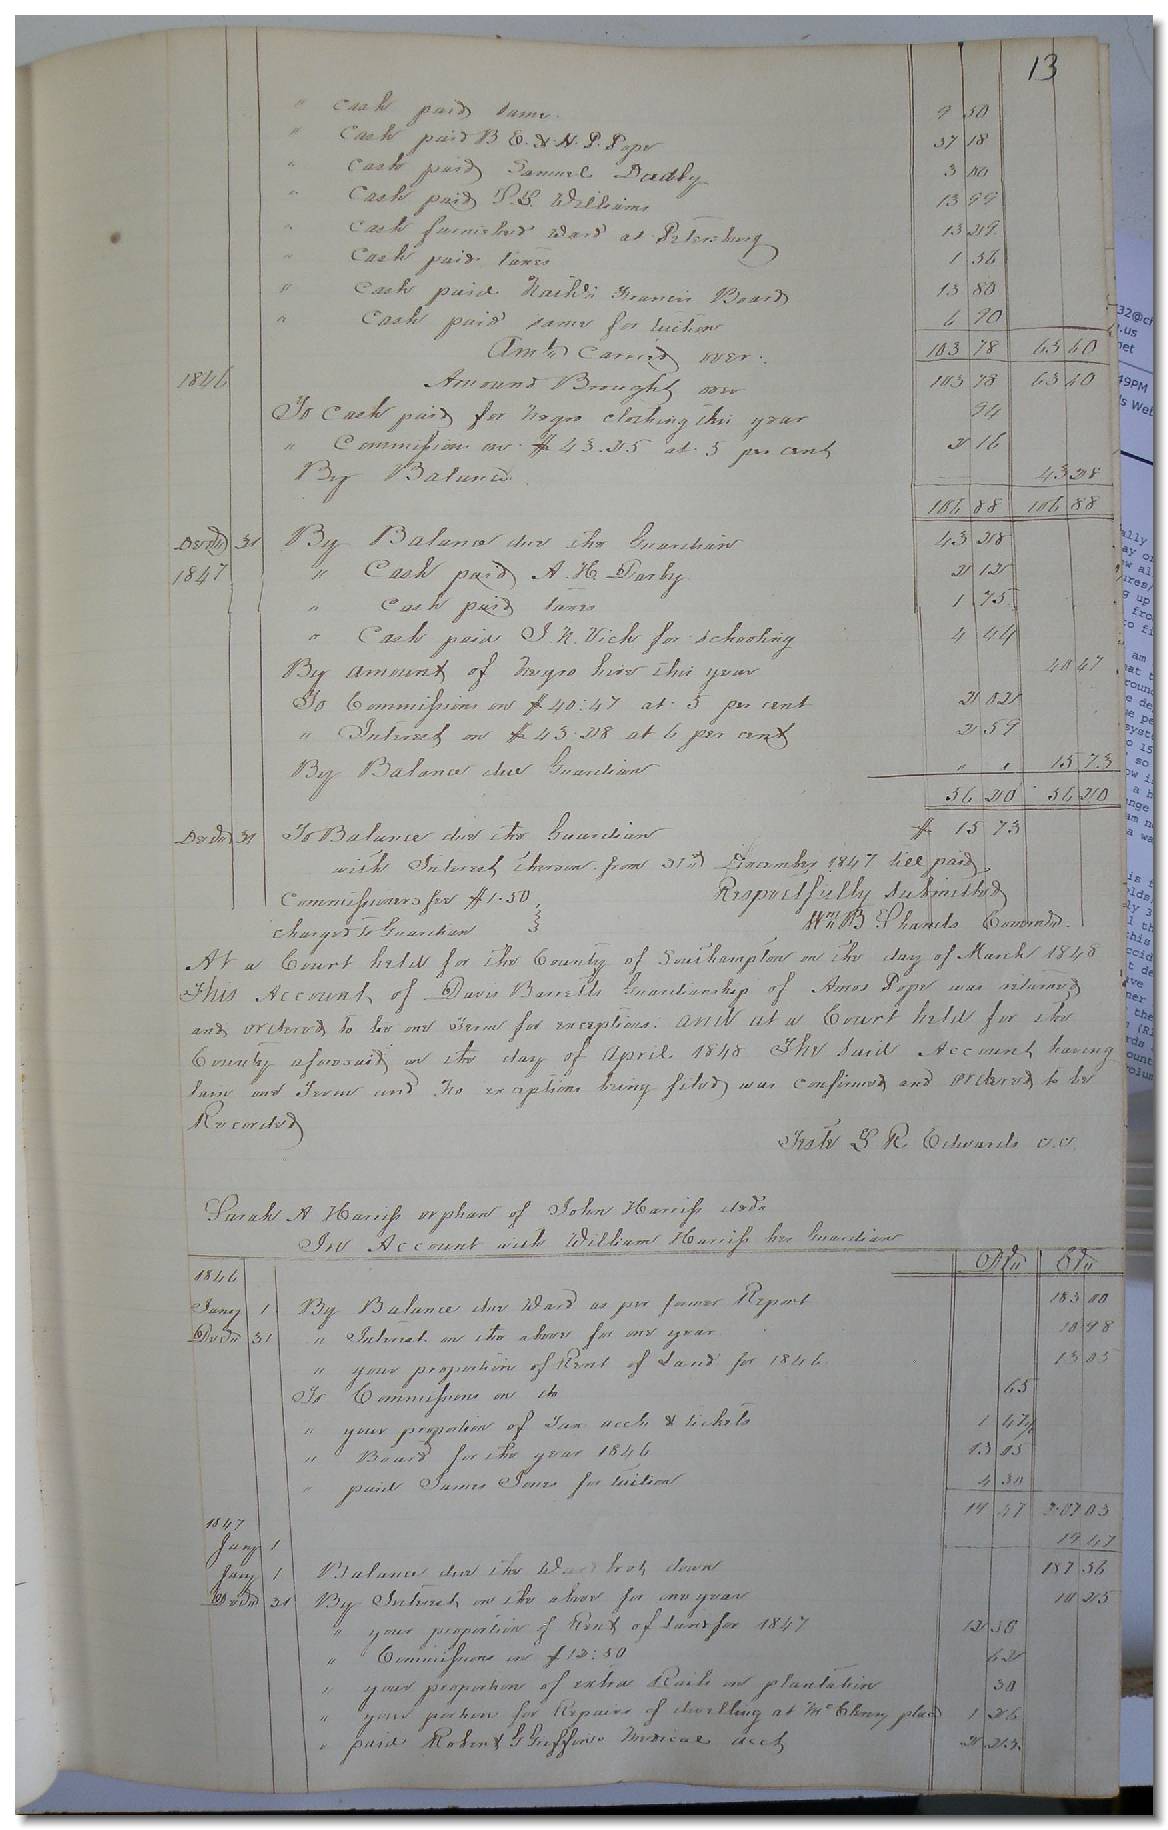 13
" Cash paid same 9 50
" Cash paid B E. & H. P. Pope 37 18
" Cash paid Samuel 3 00
" Cash paid Williams 13 99
" Cash furnished ward at Petersburg 13 29
" Cash paid taxes 1 56
" Cash paid Francis Board 13 80
" Cash paid same for tuition 6 90
Amt carried over 103 78 63 60
1846 Amount Brought over 103 78 63 60
To Cash paid for negro clothing this year 94
" Commission on $43.25 at 5 per cent 2 16
By Balance 43 28
106 88 106 88
Decbr 31 By Balance due the Guardian 43 28
1847 " Cash paid A H Darby 2 12
" Cash paid taxes 1 75
" Cash paid J. N. Vick for schooling 4 44
By amount of negro hire this year 40 47
To Commissions on $40:47 at 5 per cent 2 02
" Interest on $43.28 at 6 per cent 2 59
By Balance due Guardian " " 15 73
56 20 56 20
Decbr 31 To Balance due the Guardian $ 15 73
with Interest thereon from 31st December 1847 till paid
Commissioners fee $1.50 Respectfully submitted
charged to Guardian Wm B Shands Commr
At a Court held for the County of Southampton on the day of March 1848
This Account of Davis Barretts Guardianship of Amos Pope was returned
and ordered to lie one Term for exceptions. and at a Court held for the
County aforesaid on the day of April 1848 The said Account having
lain one Term and no exceptions being filed was confirmed and ordered to be
Recorded
Teste L R Edwards c.c.
Sarah A Harriss orphan of John Harriss decd
In Account with William Harriss her Guardian
1846 Dr Cr
Jany 1 By Balance due Ward as per former Report 183 00
Decbr 31 " Interest on the above for one year 10 98
" your proportion of Rent of Land for 1846 13 05
To Commissions on do 65
" your proportion of Tax acct & tickets 1 47
" Board for the year 1846 13 05
" paid James Jones for tuition 4 30
19 47 207 03
1847
Jany 1 19 47
Jany 1 Balance due the Ward brot down 187 56
Decbr 31 By Interest on the above for one year 11 25
" your proportion of Rent of Land for 1847 12 50
" Commissions on $12:50 62
" your proportion of extra Rails on plantation 30
" your portion for Repairs of dwelling at place 1 26
" paid Robert G Griffins Medical acct 2 25